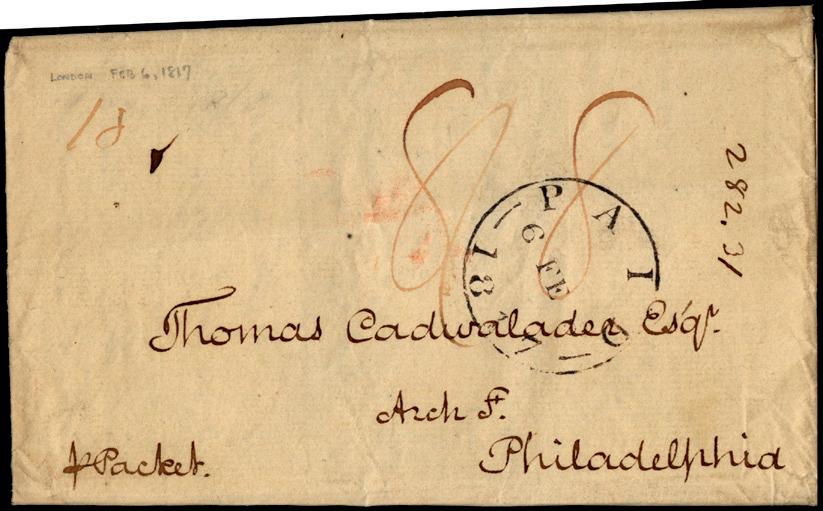 LONDON FEB 6, 1817
1/8
88
282.31
PAID
6 FE
1817
Thomas Cadwalader Esqr.
Arch St.
p Packet.
Philadelphia